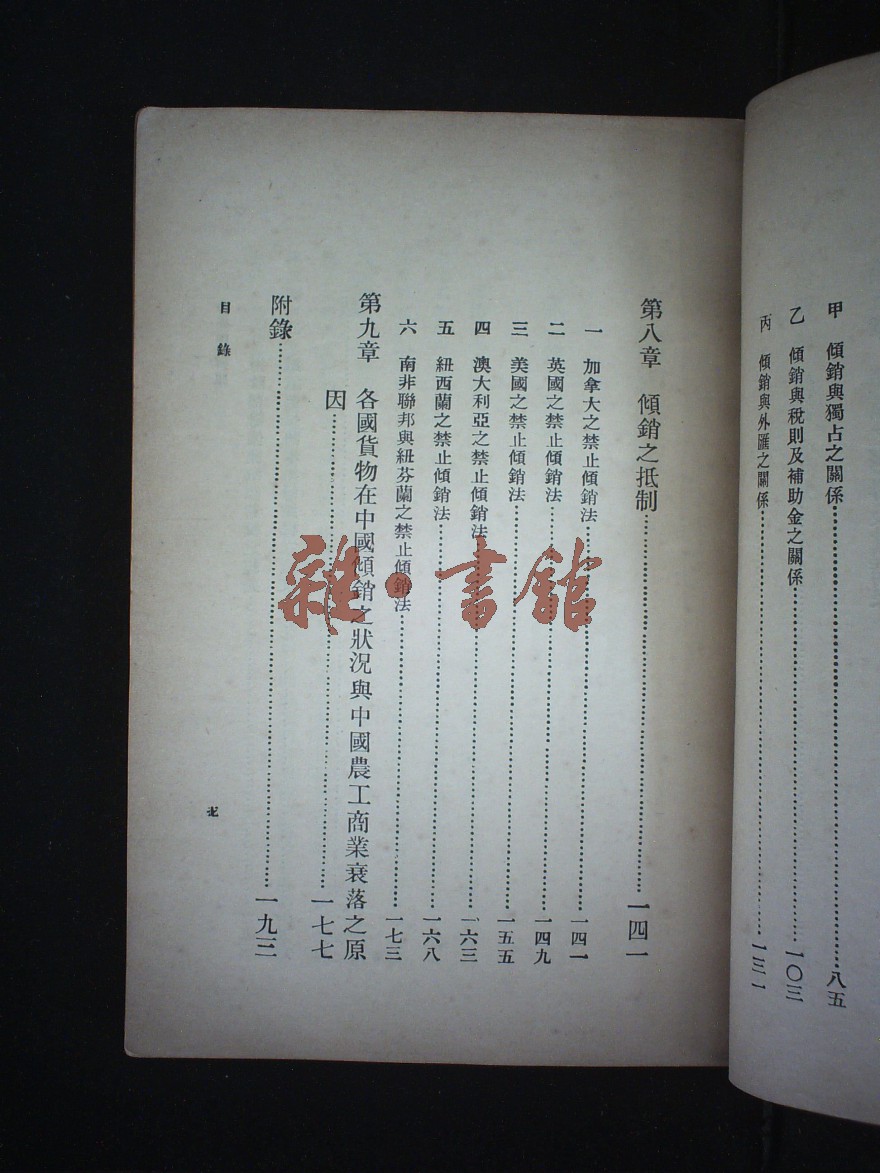 甲　傾銷與獨占之關係……八五
乙　傾銷與稅則及補助金之關係……一〇三
丙　傾銷與外匯之關係……一三一
第八章　傾銷之抵制……一四一
一　加拿大之禁止傾銷法……一四一
二　英國之禁止傾銷法……一四九
三　美國之禁止傾銷法……一五五
四　澳大利亞之禁止傾銷法……一六三
五　紐西蘭之禁止傾銷法……一六八
六　南非聯邦與紐芬蘭之禁止傾銷法……一七三
第九章　各國貨物在中國傾銷之狀況與中國農工商業衰落之原
因……一七七
附錄……一九三
目錄
雜·書館